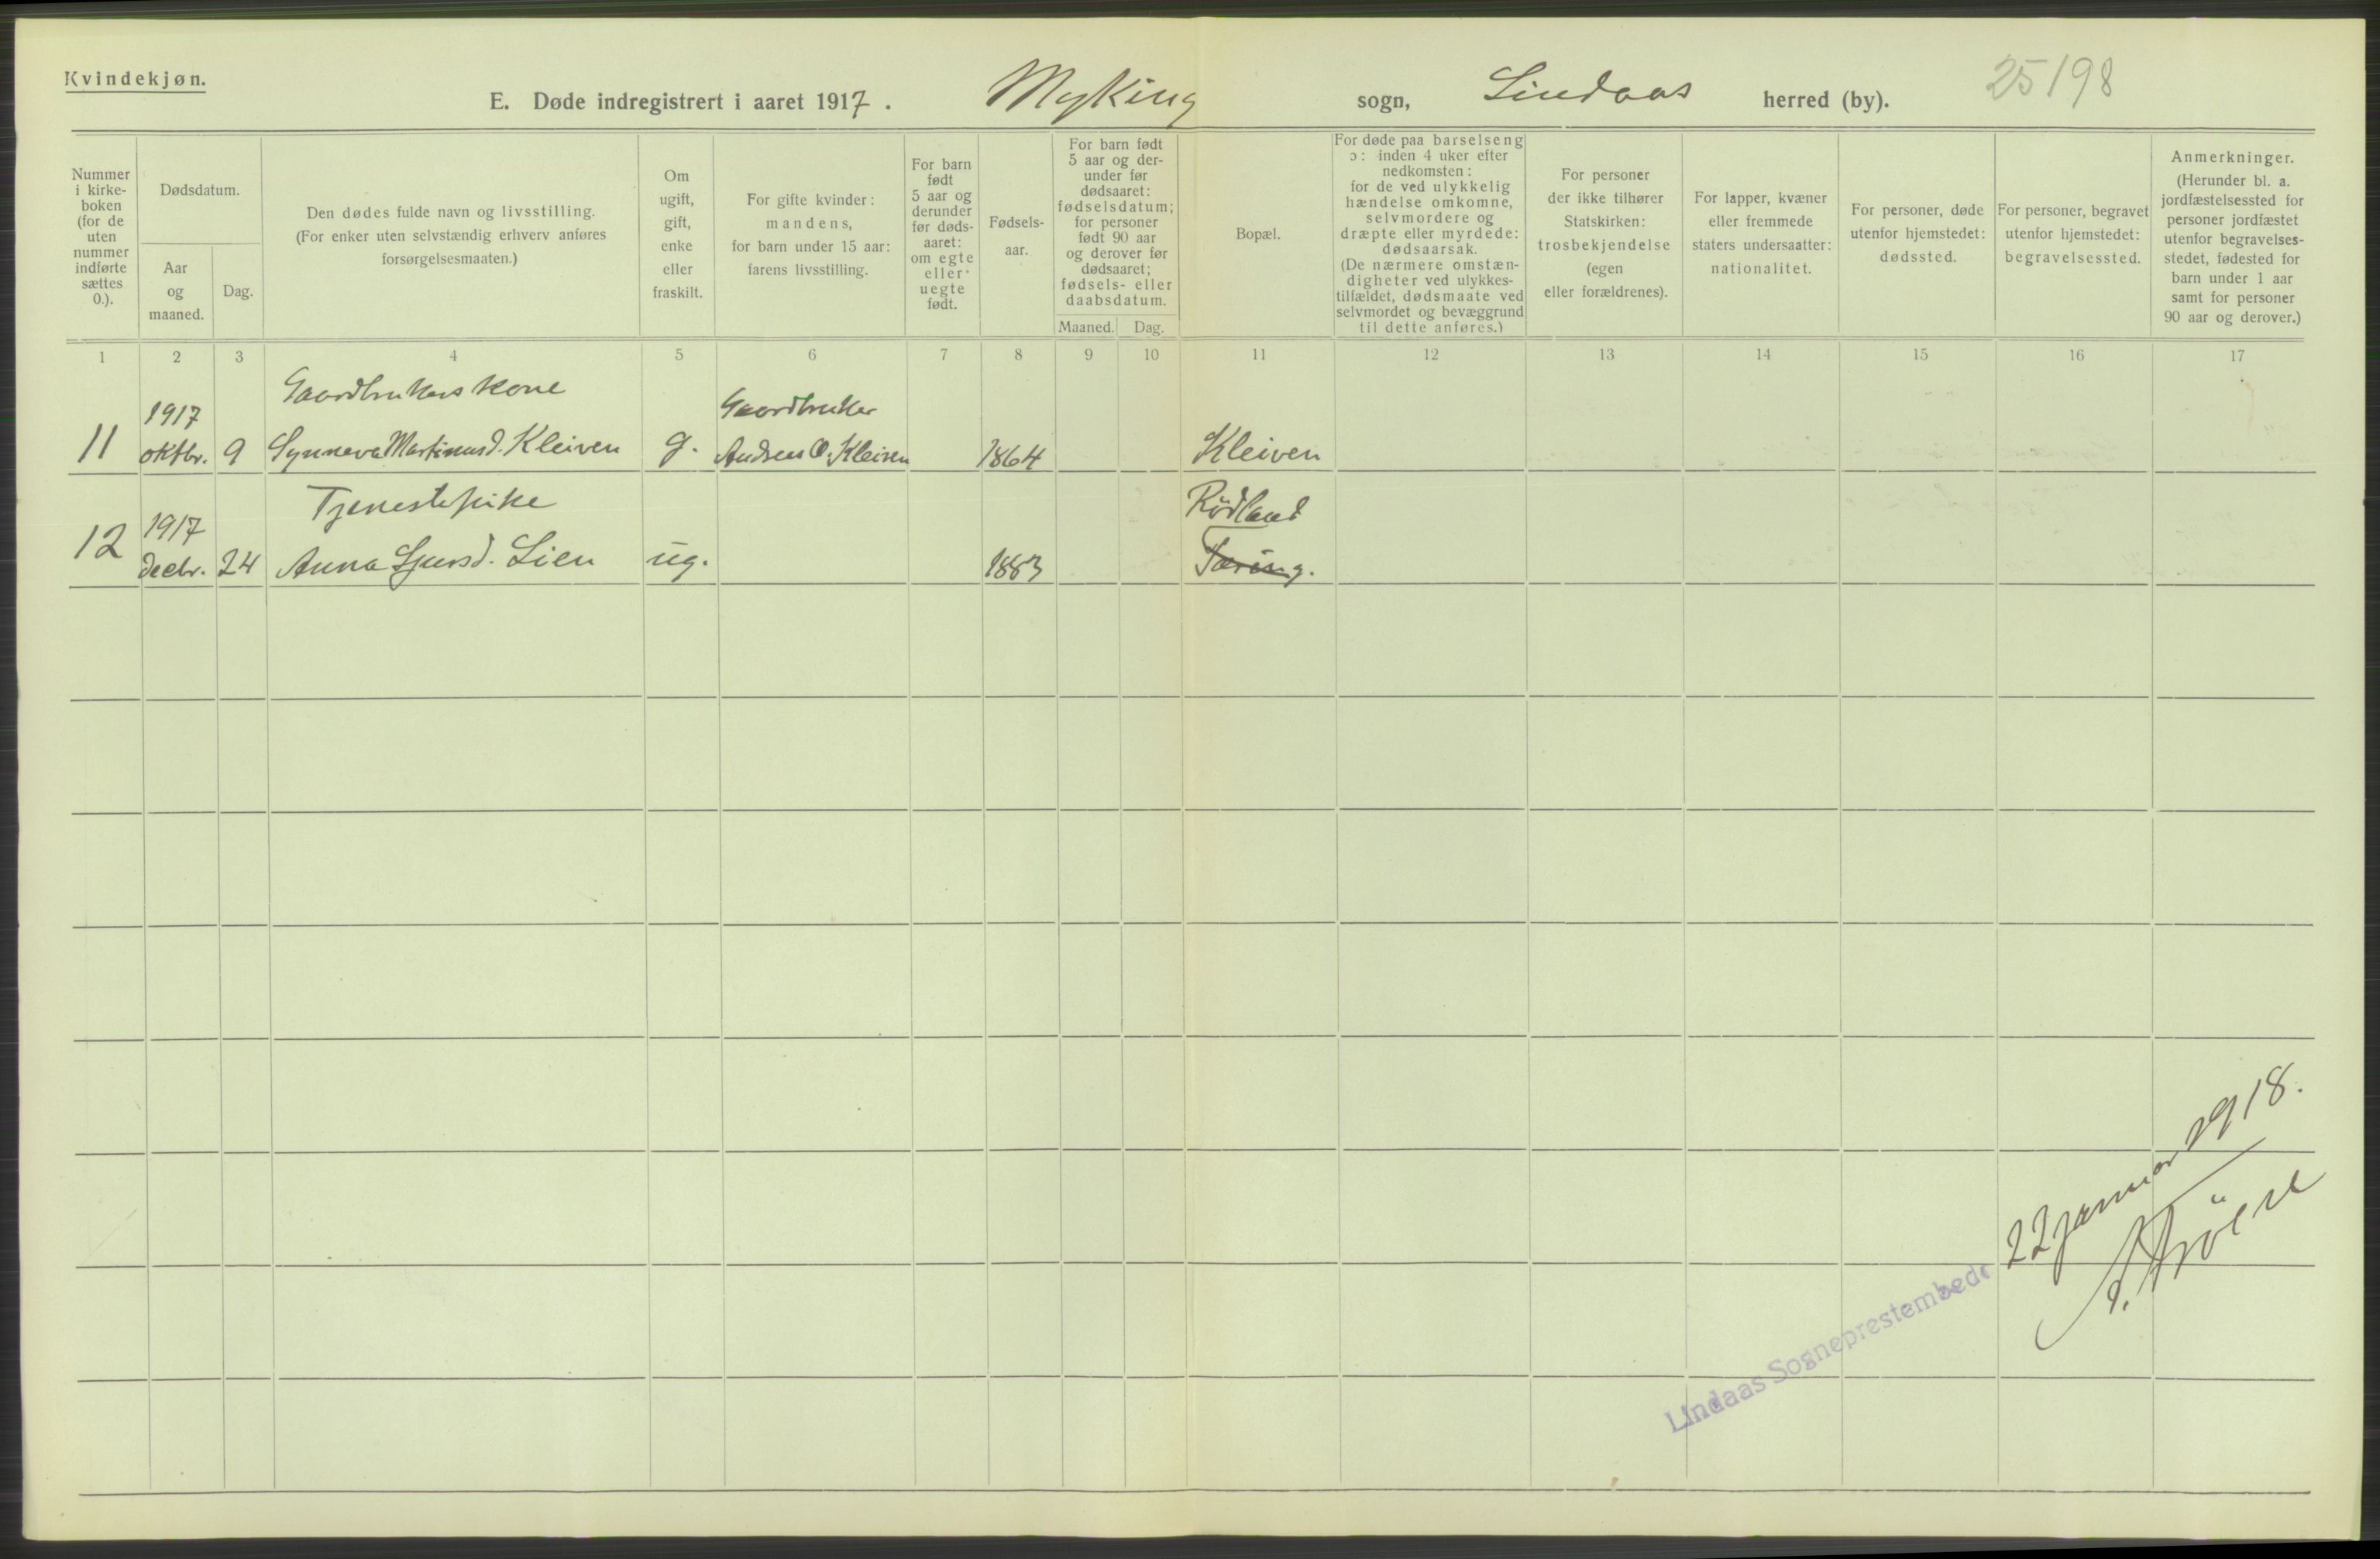 Kvindekjøn.
E. Døde indregistrert i aaret 1917. Myking sogn, Lindaas herred (by). 25/98
Nummer
i kirke-
boken
(for de
uten
nummer
indførte
sættes
0.).
Dødsdatum.
Aar
og
maaned.
Dag.
Den dødes fulde navn og livsstilling.
(For enker uten selvstændig erhverv anføres
forsørgelsesmaaten.)
Om
ugift,
gift,
enke
eller
fraskilt.
For gifte kvinder:
mandens,
for barn under 15 aar:
farens livsstilling.
For barn
født
5 aar og
derunder
før døds-
aaret:
om egte
eller
uegte
født.
Fødsels-
aar.
For barn født
5 aar og der-
under før
dødsaaret:
fødselsdatum;
for personer
født 90 aar
og derover før
dødsaaret;
fødsels- eller
daabsdatum.
Maaned. Dag.
Bopæl.
For døde paa barselseng
ɔ: inden 4 uker efter
nedkomsten:
for de ved ulykkelig
hændelse omkomne,
selvmordere og
dræpte eller myrdede:
dødsaarsak.
(De nærmere omstæn-
digheter ved ulykkes-
tilfældet, dødsmaate ved
selvmordet og bevæggrund
til dette anføres.)
For personer
der ikke tilhører
Statskirken:
trosbekjendelse
(egen
eller forældrenes).
For lapper, kvæner
eller fremmede
staters undersaatter:
nationalitet.
For personer, døde
utenfor hjemstedet:
dødssted.
For personer, begravet
utenfor hjemstedet:
begravelsessted.
Anmerkninger.
(Herunder bl. a.
jordfæstelsessted for
personer jordfæstet
utenfor begravelses-
stedet, fødested for
barn under 1 aar
samt for personer
90 aar og derover.)
1 2 3 4 5 6 7 8 9 10 11 12 13 14 15 16 17
Gaardbrukers kone
1917 Gaardbruker
11 oktbr. 9 Synneva Martinusd. Kleiven g. Andreas O. Kleiven 1864 Kleiven
Tjenestepike Rödland
1917
12 decbr. 24 Anna Sjursd. Lien ug. 1883
22 januar 1918.
Lindaas Sogneprestembede